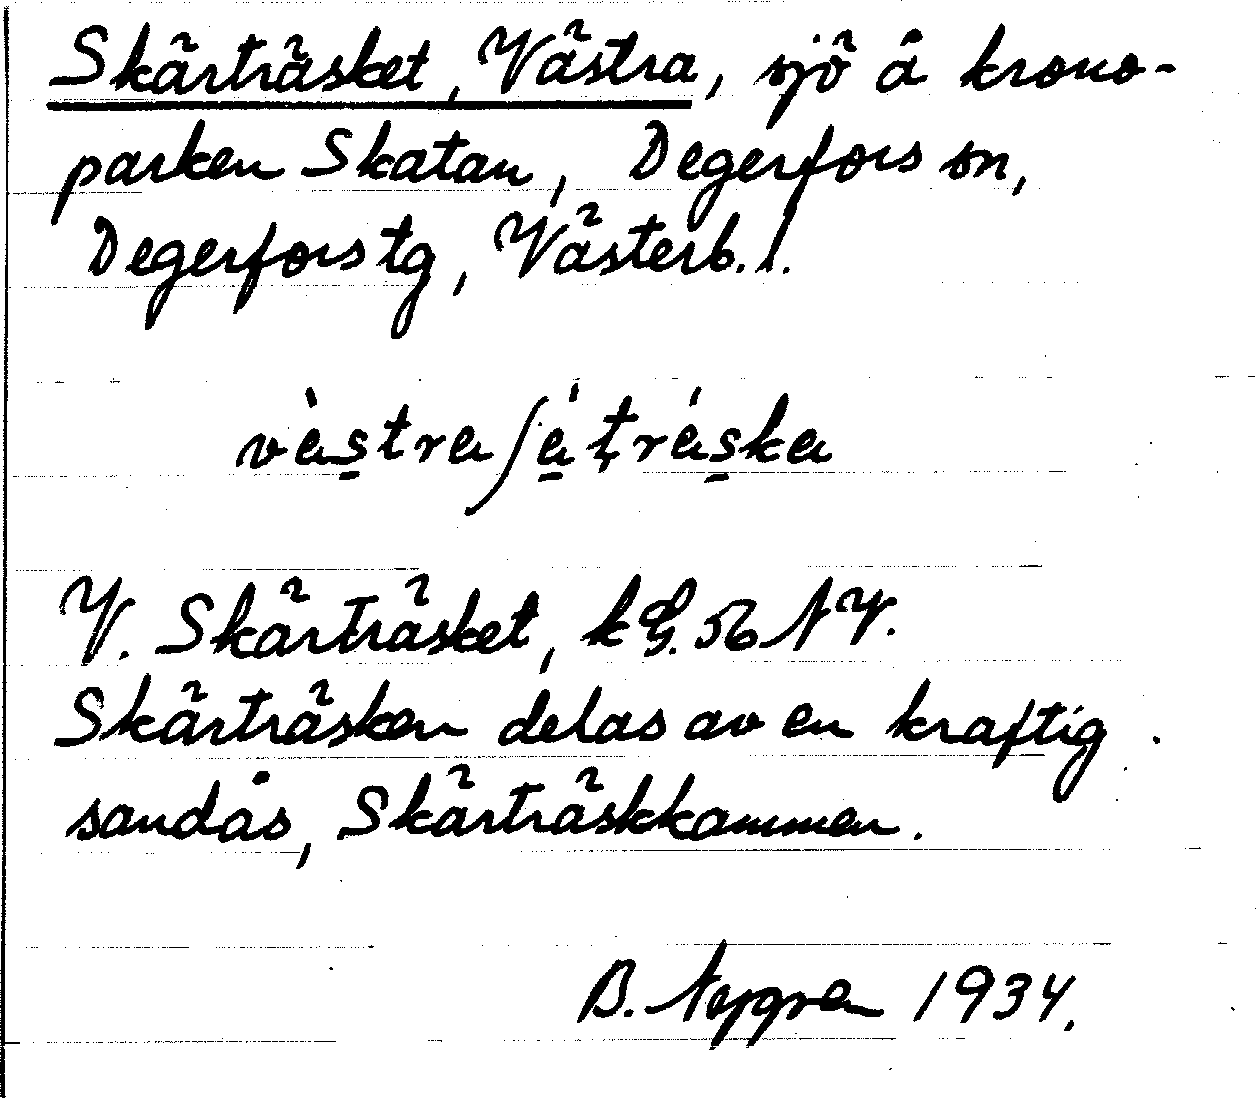 Skärträsket, Västra, sjö å krono-
parken Skatan, Degerfors sn,
Degerfors tg, Västerb. l.
V. Skärträsket, 56 NV.
Skärträsken delas av en kraftig
sandås, Skärträskkammen.
B. Nygren 1934.